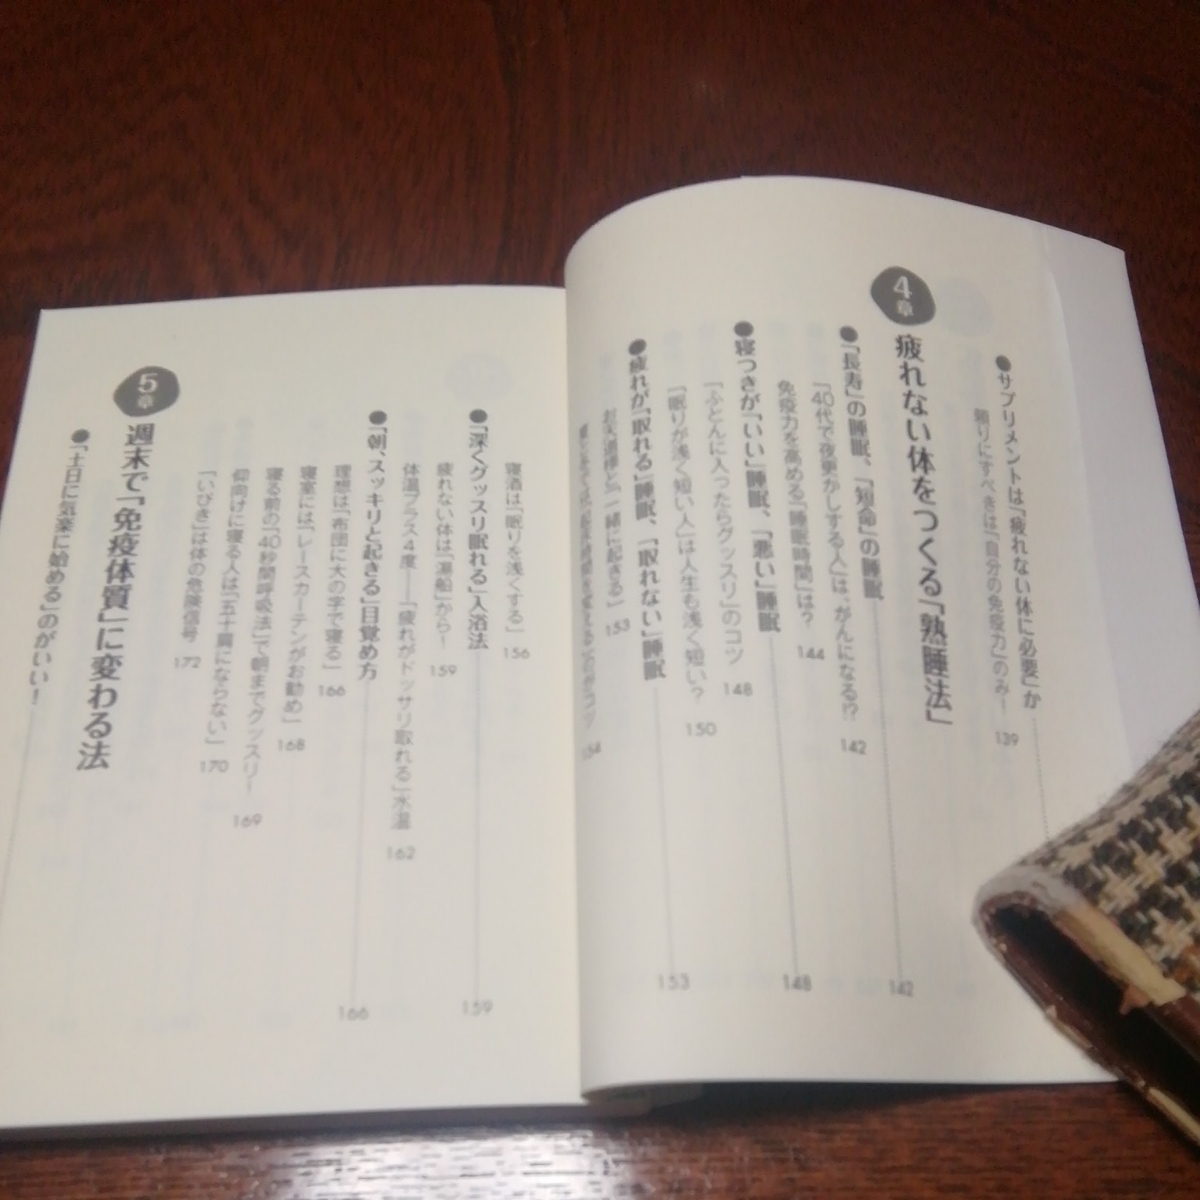 ●サプリメントは「疲れない体に必要」か
頼りにすべきは「自分の免疫力」のみ! 139
4章 疲れない体をつくる「熟睡法」
●「長寿」の睡眠、「短命」の睡眠 142
「40代で夜更かしする人」は、がんになる!? 142
免疫力を高める「睡眠時間」は? 144
●寝つきが「いい」睡眠、「悪い」睡眠 148
「ふとんに入ったらグッスリ」のコツ 148
「眠りが浅く短い人」は人生も浅く短い? 150
●疲れが「取れる」睡眠、「取れない」睡眠 153
お天道様と「一緒に起きる」 153
のがコツ 154
寝酒は「眠りを浅くする」 156
●「深くグッスリ眠れる」入浴法 159
疲れない体は「湯船」から! 159
体温プラス4度――「疲れがドッサリ取れる」水温 162
●「朝、スッキリと起きる」目覚め方 166
理想は「布団に大の字で寝る」 166
寝室には「レースカーテンがお勧め」 168
寝る前の「40秒間呼吸法」で朝までグッスリ! 169
仰向けに寝る人は「五十肩にならない」 170
「いびき」は体の危険信号 172
5章 週末で「免疫体質」に変わる法
●「土日に気楽に始める」のがいい!